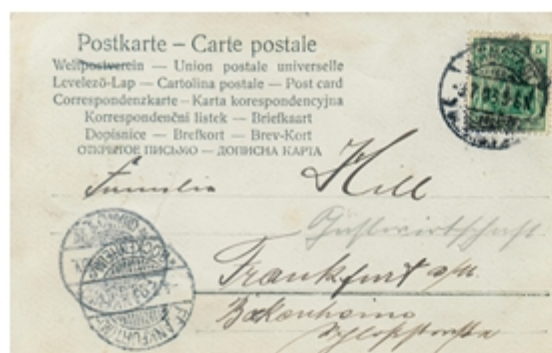 Postkarte – Carte postale
Weltpostverein — Union postale universelle
Levelező-Lap — Cartolina postale — Post card
Correspondenzkarte – Karta korespondencyjna
Korrespondenční lístek — Briefkaart
Dopisnice — Brefkort — Brev-Kort
ОТКРЫТОЕ ПИСЬМО — ДОПИСНА КАРТА
5
Familie Hill
Gastwirtschaft
Frankfurt a/M.
Bockenheim